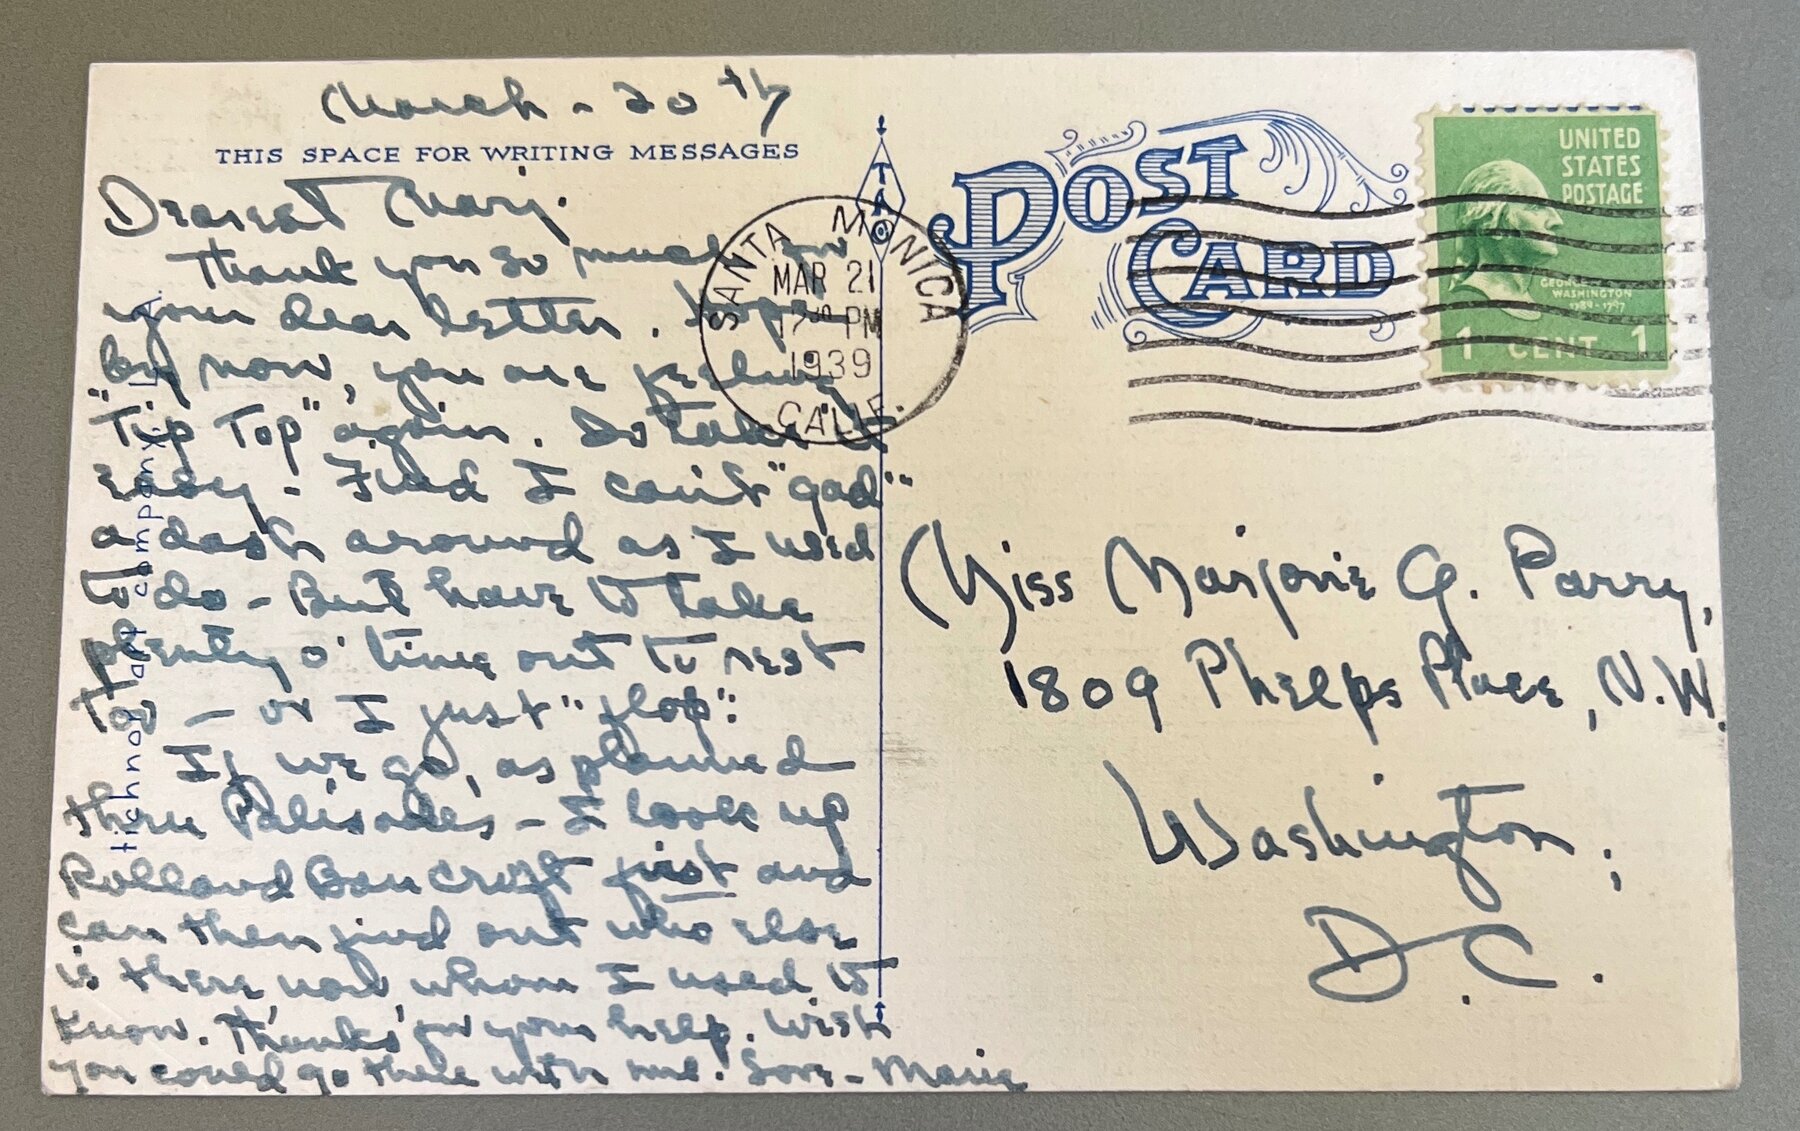 March - 20th
THIS SPACE FOR WRITING MESSAGES
Dearest Marj.
Thank you so much for
your dear letter. Hope
by now, you are feeling
"Tip Top" again. Do take it
easy - Find I can't "gad"
a dash around as I used
to do - But have to take
plenty o' time out to rest
too - or I just "flop".
If we go, as planned
thru Palisades - I look up
Rolland Bancroft first and
can then find out who else
is there now whom I used to
know. 'Thanks' for your help. Wish
you could go there with me. Love - Marie
tichnor art company, L.A.
TA
O
POST
CARD
SANTA MONICA
MAR 21
12 30 PM
1939
CALIF.
UNITED
STATES
POSTAGE
GEORGE
WASHINGTON
1789-1797
1 CENT 1
Miss Marjorie G. Parry,
1809 Phelps Place, N.W.
Washington,
D.C.